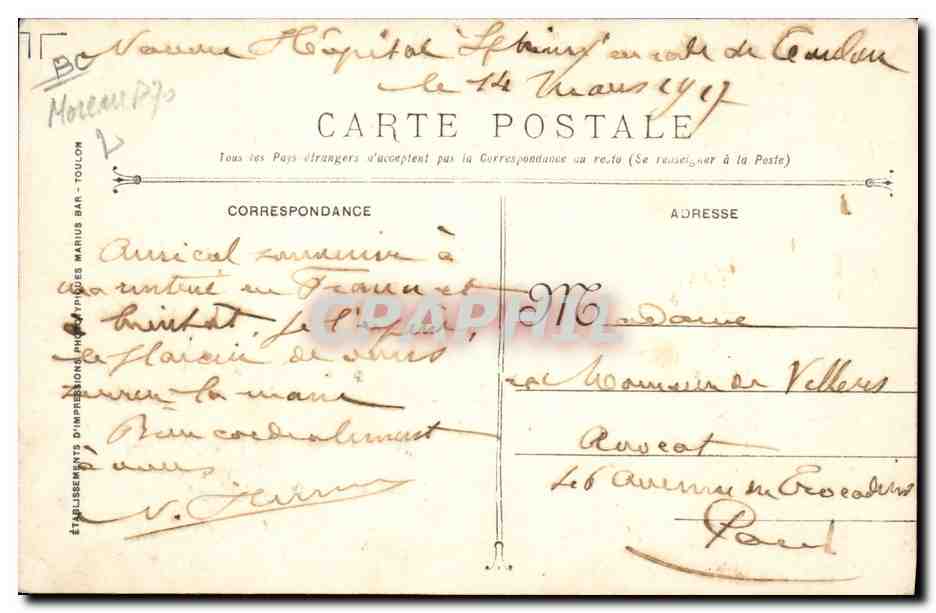 BC
Hôpital en rade de Toulon
le 14 Mars 1917
CARTE POSTALE
Tous les Pays étrangers n'acceptent pas la Correspondance au recto (Se renseigner à la Poste)
ÉTABLISSEMENTS D'IMPRESSIONS PHOTOTYPIQUES MARIUS BAR - TOULON
CORRESPONDANCE
Amical souvenir à
ma rentrée en France et
à bientôt, je l'espère,
le plaisir de vous
serrer la main
Bien cordialement
à vous
CPAPHIL
ADRESSE
Madame
et Monsieur de Villers
Avocat
46 Avenue du Trocadéro
Paris